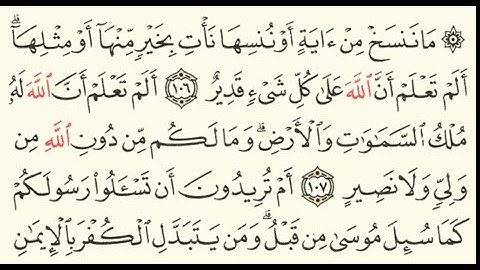 ۞ مَا نَنسَخْ مِنْ ءَايَةٍ أَوْ نُنسِهَا نَأْتِ بِخَيْرٍ مِّنْهَآ أَوْ مِثْلِهَآ ۗ
أَلَمْ تَعْلَمْ أَنَّ ٱللَّهَ عَلَىٰ كُلِّ شَىْءٍ قَدِيرٌ ١٠٦ أَلَمْ تَعْلَمْ أَنَّ ٱللَّهَ لَهُۥ
مُلْكُ ٱلسَّمَـٰوَٰتِ وَٱلْأَرْضِ ۗ وَمَا لَكُم مِّن دُونِ ٱللَّهِ مِن
وَلِىٍّ وَلَا نَصِيرٍ ١٠٧ أَمْ تُرِيدُونَ أَن تَسْـَٔلُوا۟ رَسُولَكُمْ
كَمَا سُئِلَ مُوسَىٰ مِن قَبْلُ ۗ وَمَن يَتَبَدَّلِ ٱلْكُفْرَ بِٱلْإِيمَـٰنِ